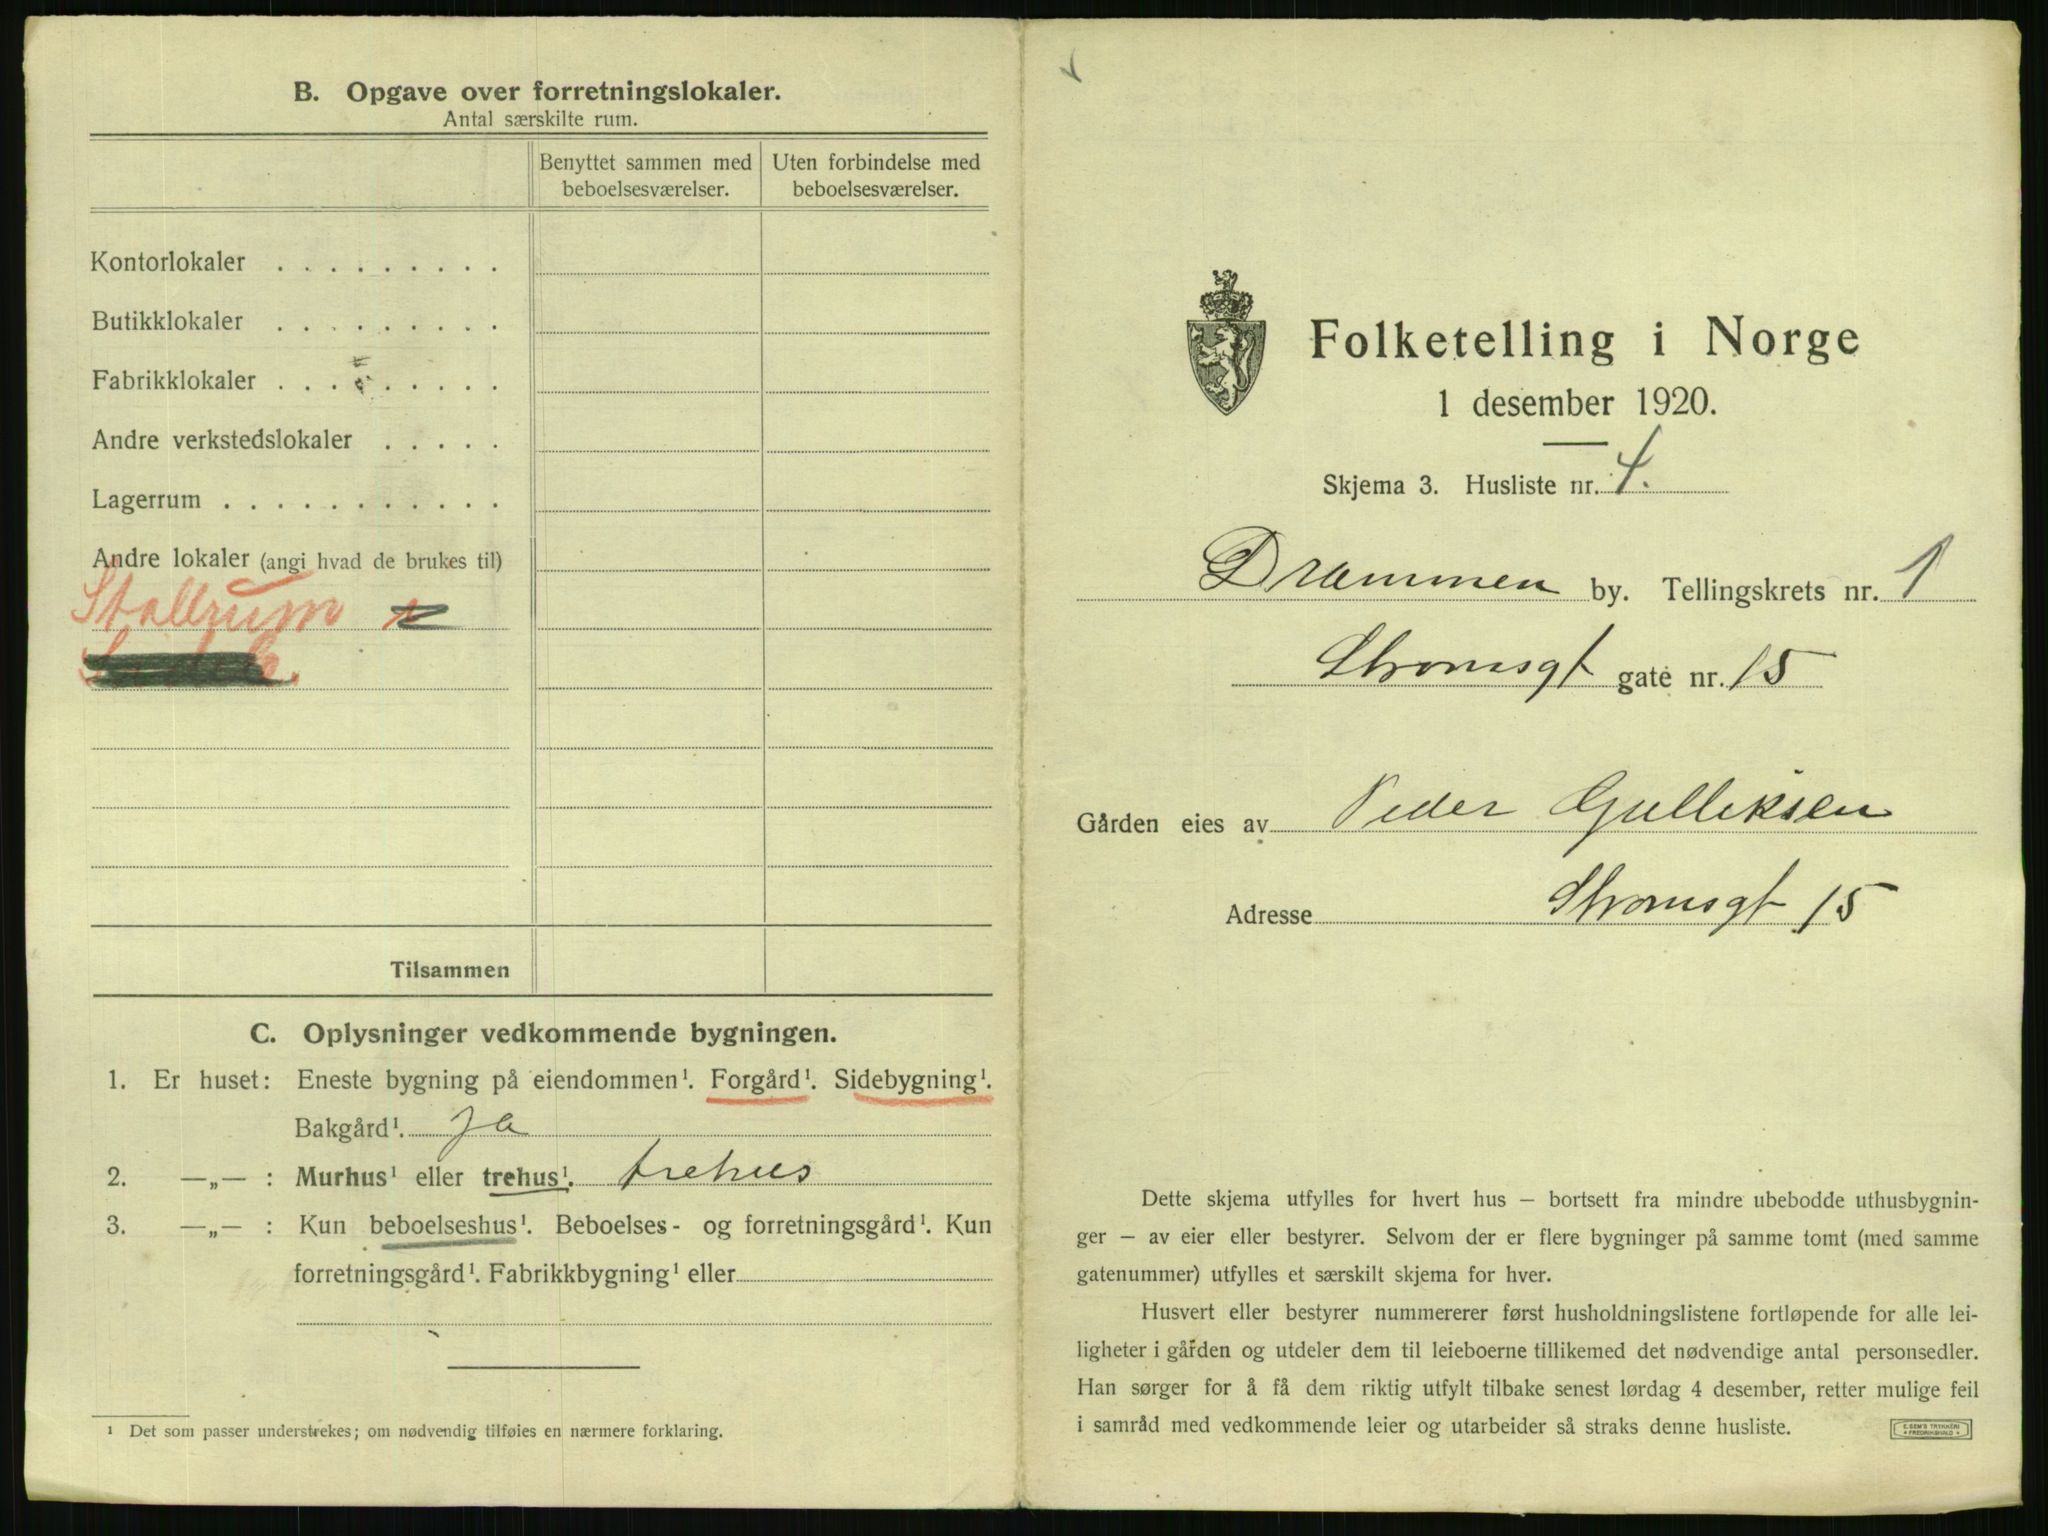 B. Opgave over forretningslokaler.
Antal særskilte rum.
Benyttet sammen med beboelsesværelser.
Uten forbindelse med beboelsesværelser.
Kontorlokaler . . . . . . . . .
Butikklokaler . . . . . . . . .
Fabrikklokaler . . . . . . . . .
Andre verkstedslokaler . . . . .
Lagerrum . . . . . . . . . . .
Andre lokaler (angi hvad de brukes til)
Stallrum
Tilsammen
C. Oplysninger vedkommende bygningen.
1. Er huset: Eneste bygning på eiendommen¹. Forgård¹. Sidebygning¹.
Bakgård¹. Ja
2. —„— : Murhus¹ eller trehus¹. trehus
3. —„— : Kun beboelseshus¹. Beboelses- og forretningsgård¹. Kun
forretningsgård¹. Fabrikkbygning¹ eller
¹ Det som passer understrekes; om nødvendig tilføies en nærmere forklaring.
Folketelling i Norge
1 desember 1920.
Skjema 3. Husliste nr. 4.
Drammen by. Tellingskrets nr. 1
Strømsgt gate nr. 15
Gården eies av Peder Gulliksen
Adresse Strømsgt 15
Dette skjema utfylles for hvert hus — bortsett fra mindre ubebodde uthusbygnin-
ger — av eier eller bestyrer. Selvom der er flere bygninger på samme tomt (med samme
gatenummer) utfylles et særskilt skjema for hver.
Husvert eller bestyrer nummererer først husholdningslistene fortløpende for alle lei-
ligheter i gården og utdeler dem til leieboerne tillikemed det nødvendige antal personsedler.
Han sørger for å få dem riktig utfylt tilbake senest lørdag 4 desember, retter mulige feil
i samråd med vedkommende leier og utarbeider så straks denne husliste.
E. SEM'S TRYKKERI
FREDRIKSHALD